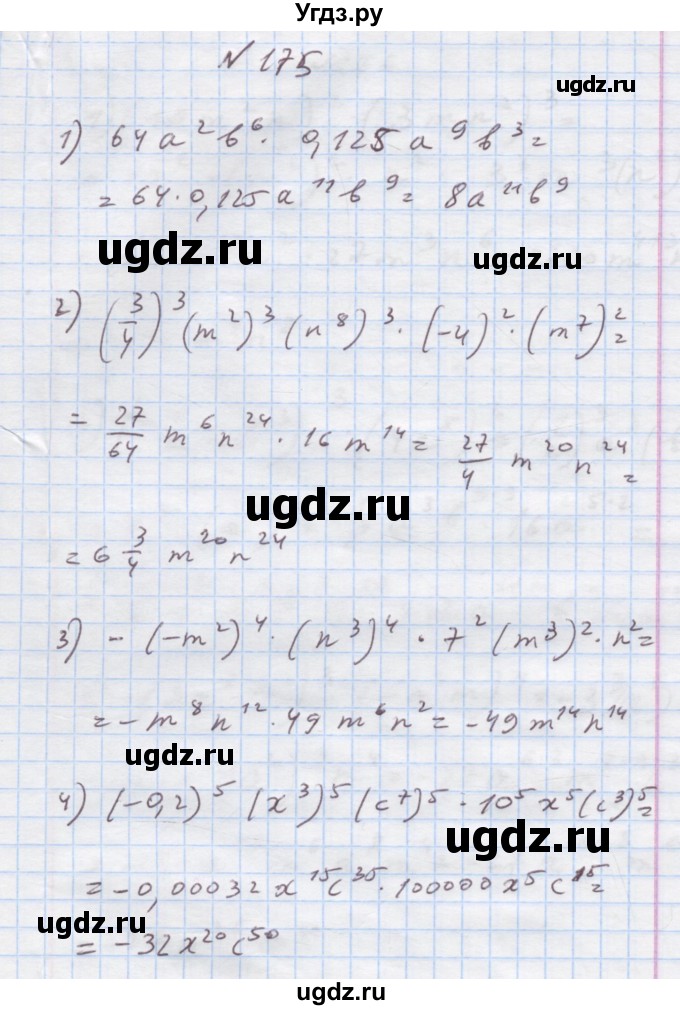 Угдз.ру
№ 175
ugdz.ru
1) 64a²b⁶ · 0,125a⁹b³ =
= 64 · 0,125a¹¹b⁹ = 8a¹¹b⁹
ugdz.ru ugdz.ru
2) (3/4)³ (m²)³ (n⁸)³ · (-4)² · (m⁷)² =
= 27/64 m⁶n²⁴ · 16m¹⁴ = 27/4 m²⁰n²⁴ =
ugdz.ru
= 6 3/4 m²⁰n²⁴
3) -(-m²)⁴ · (n³)⁴ · 7² (m³)² · n² =
= -m⁸n¹² · 49m⁶n² = -49m¹⁴n¹⁴
ugdz.ru
4) (-0,2)⁵ (x³)⁵ (c⁷)⁵ · 10⁵x⁵(c³)⁵ =
ugdz.ru
= -0,00032x¹⁵c³⁵ · 100000x⁵c¹⁵ =
ugdz.ru
= -32x²⁰c⁵⁰
ugdz.ru